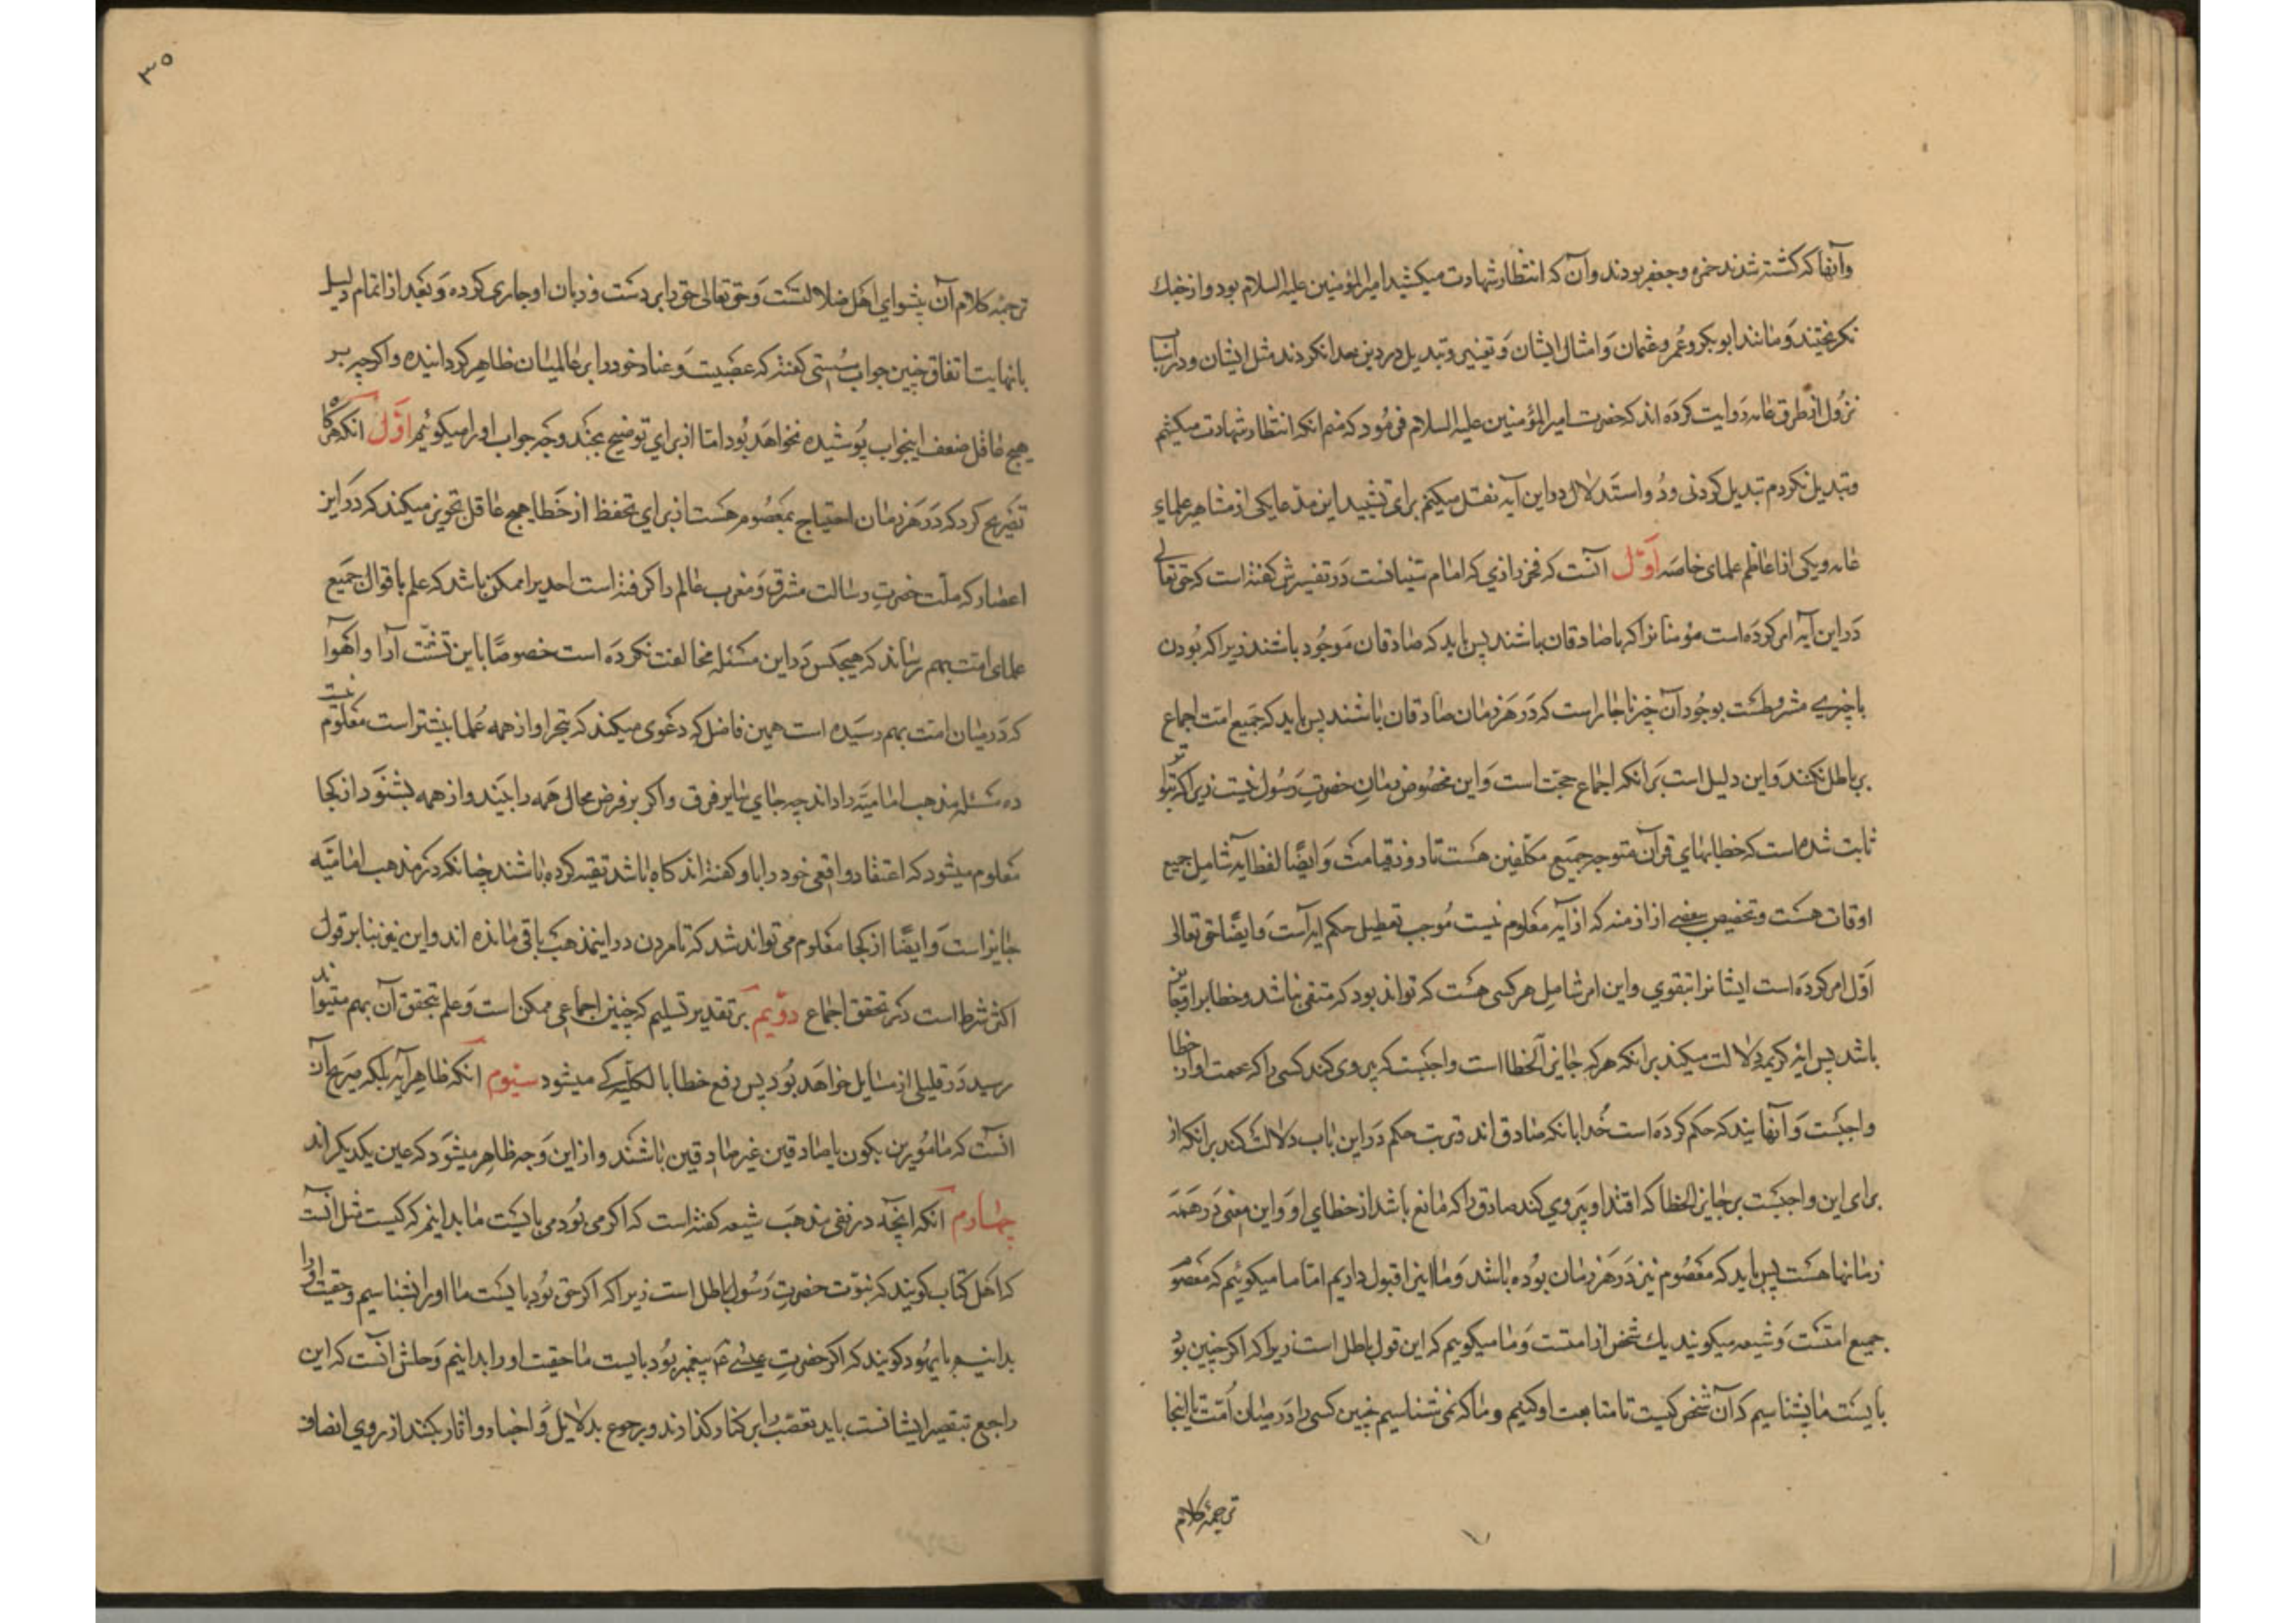 وآنها که کشته شدند حمزه وجعفر بودند وآن که انتظار شهادت میکشید امیرالمؤمنین علیه السلام بود واز جنك
نکریختند وَمانند ابوبکر وعُمر وعثمان وَامثال ایشان وَتغییر وتبدیل در دین خدا نکردند مثل ایشان ودر
نزُول از طرق عامه رَوایت کردَه اند که حضرت امیرالمؤمنین علیه السلام فرمُود که منم انکه انتظار شهادت میکشم
وتبدیل نکردم تبدیل کردنی و استَدلال دو این آیه نقل میکنم برای تشیید این مدّعا یکی از مشاهیر علماءِ
عامه ویکی از اعاظم علمای خاصَه اوّل آنست که فخر رازي که امام سنیانست دَر تفسیرش کفته است که حق تعالی
دَر این آیه امر کردَه است مؤمنانرا که با صادقان باشند پس باید که صادقان مَوجُود باشند زیرا که بُودن
با چیزے مشروطست بوجُود آن چیز ناچار است که دَر هَر زمان صادقان باشند پس باید که جَمیع امّت اجماع
بر باطل نکنند وَاین دلیل است بَر انکه اجماع حجّت است وَاین مخصُوص زمانِ حضرتِ رَسُول نیست زیرا که بتواتر
ثابت شده است که خطابهای قرآن متوجه جَمیع مکلّفین هسَت تا روز قیامت وَایضًا لفظ ایه شامل جمیع
اوقات هسَت وتخصیص بعضے از ازمنه که از آیه معلوم نیست مُوجب تعطیل حکم ایه است وَایضًا حق تعالی
اَوّل امر کردَه است ایشانرا بتقوي واین امر شامل هر کسی هست که تواند بود که متقی نباشد وخطا بر او جایز
باشد پس ایه کریمه دلالت میکند بر انکه هر که جایز الخطا است واجبست که پیروی کند کسی را که عصمت او از خطا
واجبَست وَآنهایند که حکم کردَه است خُدا بانکه صادق اند وترتب حکم دَر این باب دلالت کند بر انکه از
برای این واجبَست بر جایز الخطا که اقتدا وپَیروي کند صادق را که مانع باشد از خطاي او وَاین معنی دَر هَمَه
زمانها هسَت پس باید که مَعصُوم نیز دَر هَر زمان بوُده باشد وَما اینرا قبول داریم امّا ما میکوئیم که مَعصوم
جمیع امتسَت وَشیعه میکویند یك شخص از امتست وَما میکوییم که این قول باطل است زیرا که اکر چنین بود
بایسَت ما بشناسیم که آن شخص کیست تا متابعت او کنیم وما که نمی شناسیم چنین کسی را دَر میان اُمّت تا اینجا
ترجمهٔ کلام
۳۵
ترجمهٔ کلام آن پیشوايِ اهل ضلالتسَت وَحق تعالی حق را بر دست وزبان او جاری کرده وَبَعد از اتمام دلیل
بانهایت اتفاق چنین جواب سُستی کفته که عصَبیت وَعناد خود را بر عالمیان ظاهر کردانیده واکرچه بر
هیچ عاقل ضعف اینجواب پوُشیده نخواهَد بُود امّا از براي توضیح بچند وجه جواب او را میکوئیم اَوّل انکه هرکاه
تصَریح کرد که دَر هَر زمان احتیاج بمَعصُوم هسَت از براي تحفّظ از خَطا هیچ عاقل تجویز میکند که دَر این
اعصار که ملّت حضرتِ رسالت مشرق وَمغرب عالم را کرفته است احدیرا ممکن باشد که علم باقوال جمیع
علمای امت بهم رساند که هیچکس دَر این مسئله مخالفت نکردَه است خصوصًا با این تشتّت آرا واَهوا
که دَر میان امت بهم رسَیده است همین فاضل که دعوَی میکند که تبحّر او از همه عُلما بیشتر است معلُوم نیست
ده مسئله مذهب امامیّه را داند چه جاي سایر فرق واکر بر فرض محال همه را بیند واز همه بشنوَد از کجا
مَعلوم میشود که اعتقاد واقعی خود را باو کفته اند کاه باشد تقیه کرده باشند چنانکه در مذهب امامیّه
جایز است وَایضًا از کجا مَعلوم می تواند شد که تا مردن در اینمذهب باقی مانده اند واین نیز بنا بر قول
اکثر شرط است در تحقق اجماع دوّیم بر تقدیر تسلیم که چنین اجماعی ممکن است وَعلم بتحقق آن بهم میتواند
رسید دَر قلیلی از مسایل خواهَد بُود پس رفع خطا بالکلیه کے میشود سیُوم انکه ظاهر آیه بلکه صَریح آن
انَست که مامُورین بکون با صادقین غیر صادقین باشند واز این وَجه ظاهر میشوَد که عین یکدیکر اند
چهارم آنکه ایچه در نفی مذهَب شیعه کفته است که اکر می بوُد می بایسَت ما بدانیم که کیست مثل انست
که اَهل کتاب کویند که نبوّت حضرتِ رَسُول باطل است زیرا که اکر حق بوُد بایسَت ما او را بشناسیم وحقیت او را
بدانیم یا یهُود کویند که اکر حضرتِ عیسٰی ع پیغمبر بوُد بایست ما حقیت او را بدانیم وَحلش انست که این
راجع بتقصیر ایشانست باید تعصّب را بر کنار کذارند ورجوع بدلایل وَاخبار واثار بکنند از روي انصاف